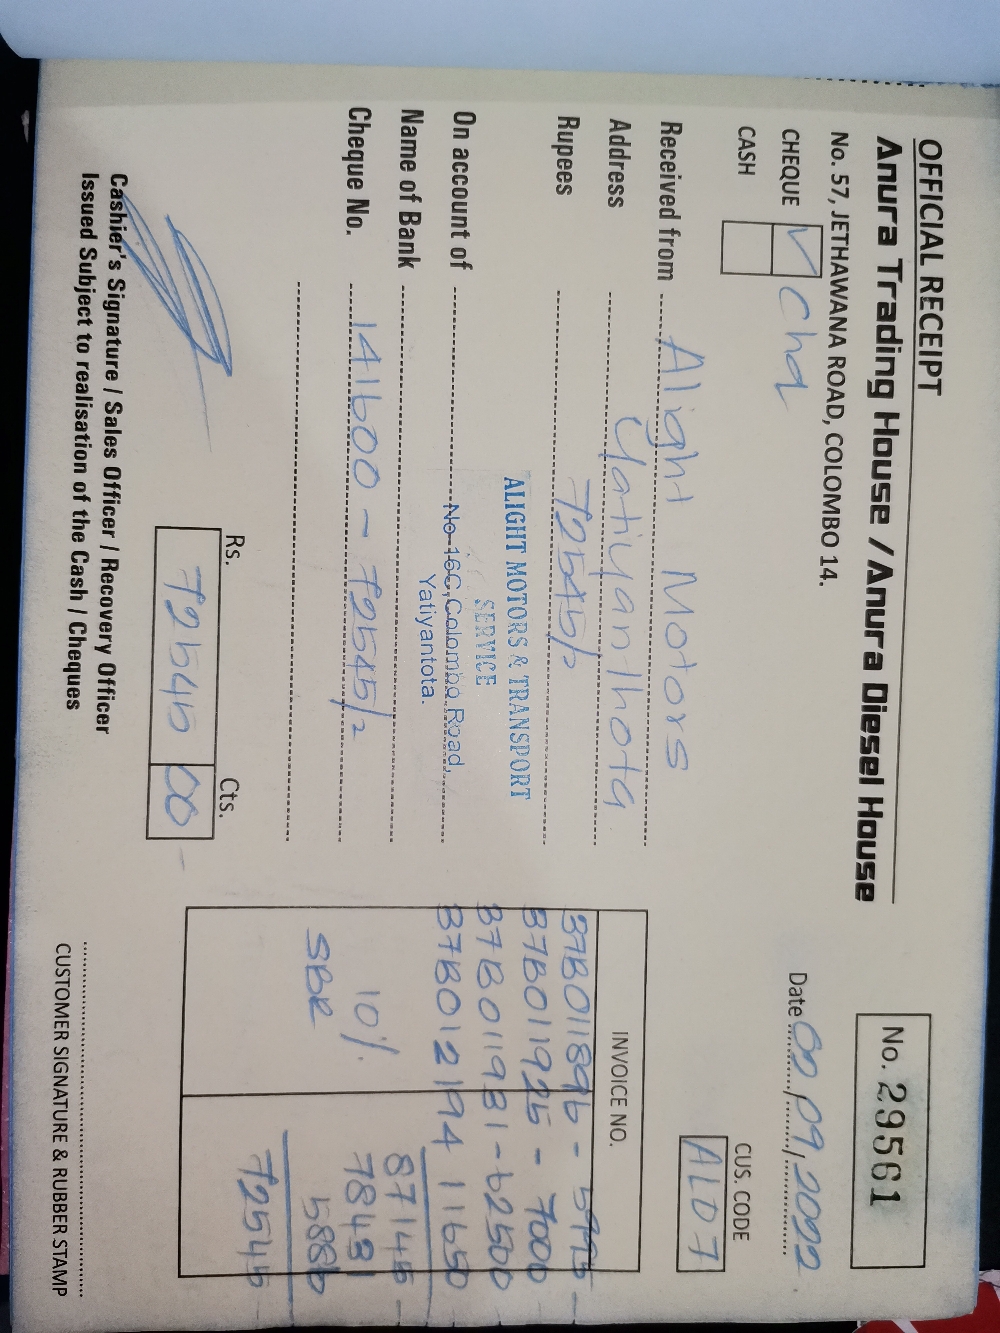 OFFICIAL RECEIPT
Anura Trading House / Anura Diesel House
No. 57, JETHAWANA ROAD, COLOMBO 14.
No. 29561
CHEQUE ✓ Chq
CASH
Date 09, 2022
CUS. CODE
ALD 7
Received from Alight Motors
Address Yatiyanthota
Rupees 72545/=
ALIGHT MOTORS & TRANSPORT
SERVICE
No-16C, Colombo Road,
Yatiyantota.
On account of
Name of Bank
Cheque No. 141600 - 72545/=
INVOICE NO.
B7B011896 - 5995 -
B7B011925 - 7000 -
B7B011931 - 62500 -
B7B012194 11650
87145 -
10% 78431
SBR 5886
72545 -
Rs. Cts.
72545 00 -
Cashier's Signature / Sales Officer / Recovery Officer
Issued Subject to realisation of the Cash / Cheques
CUSTOMER SIGNATURE & RUBBER STAMP